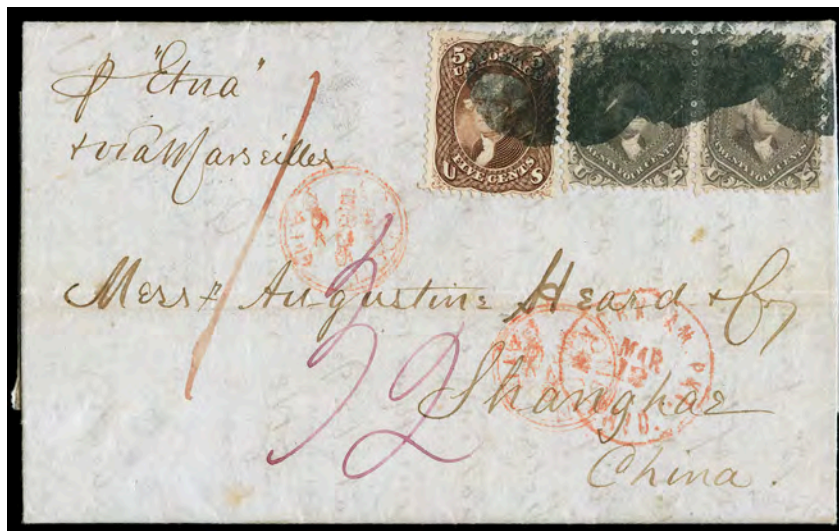 p "Etna"
+ via Marseilles
5 5
U.S. POSTAGE
FIVE CENTS
U S
TWENTY FOUR CENTS
U S
TWENTY FOUR CENTS
U S
1
Mess rs Augustine Heard & Co,
32
MAR
Shanghae
China.